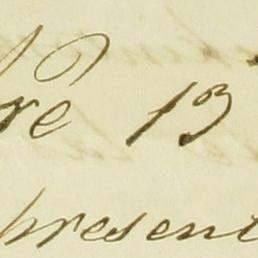 re 13
present